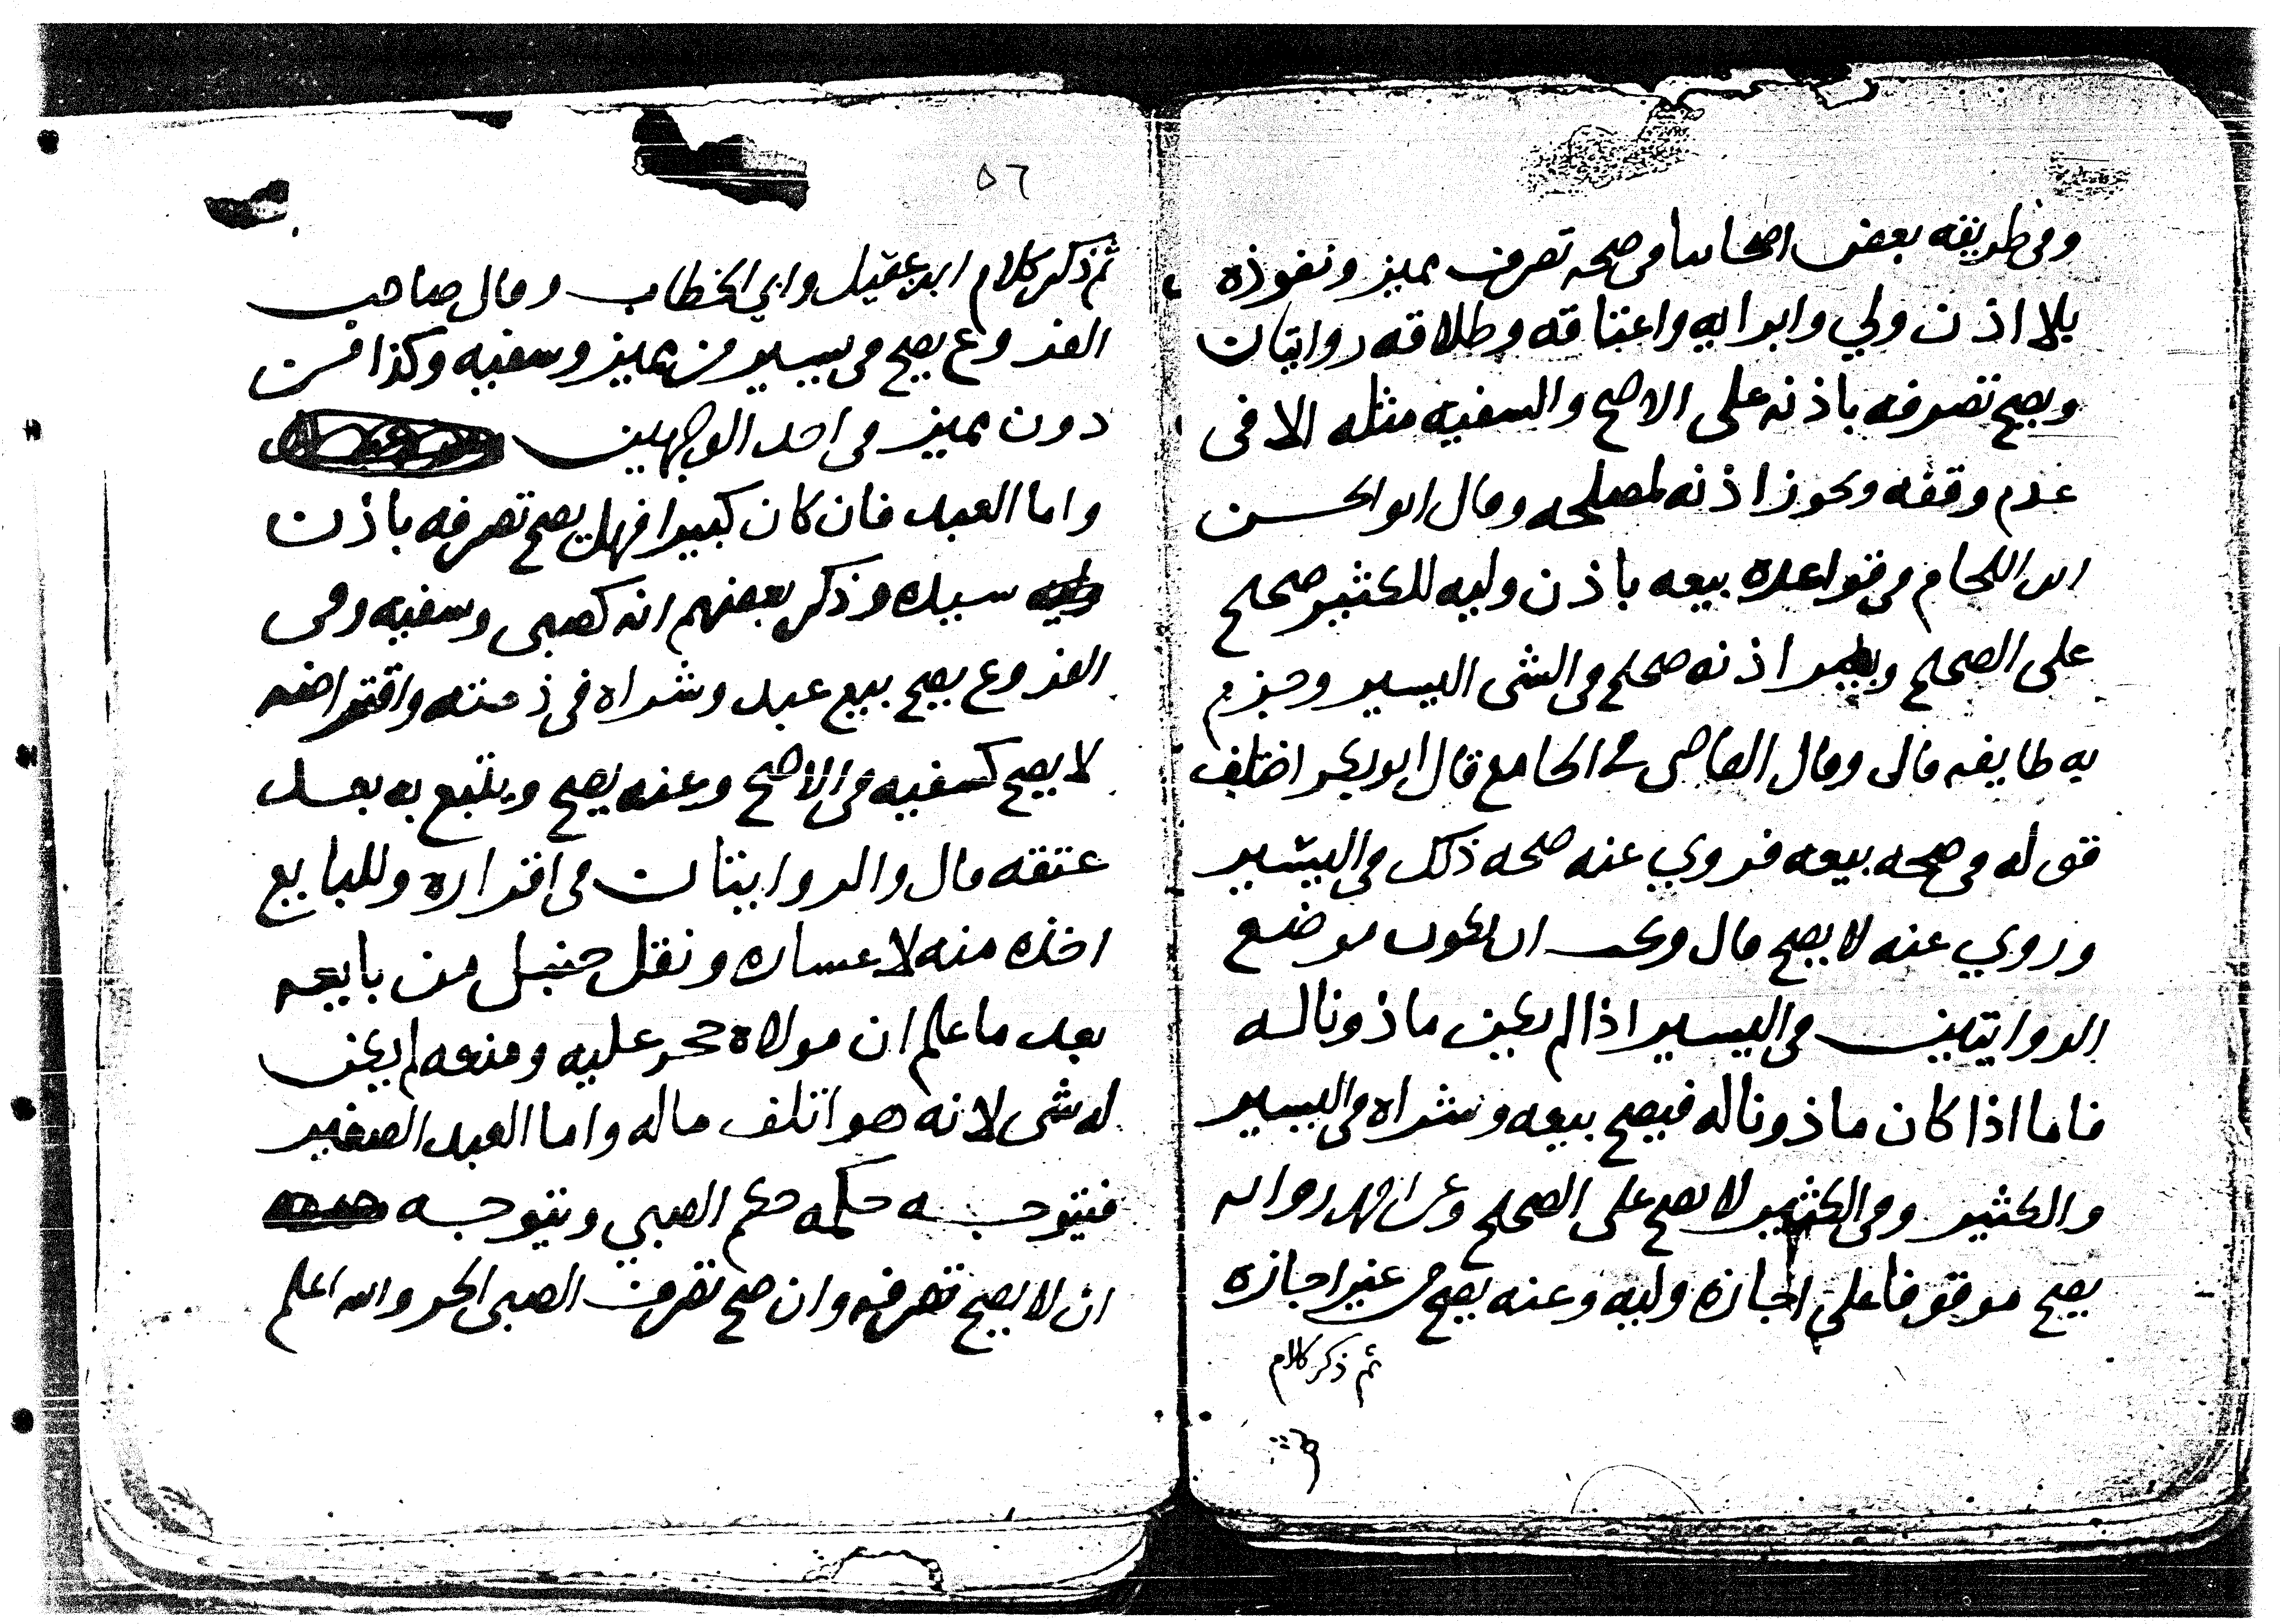 وفي طريقه بعض اصحابنا في صحه تصرف مميز ونفوذه
بلا اذن ولي وابرائه واعتاقه وطلاقه روايتان
ويصح تصرفه باذنه على الاصح والسفيه مثله الا في
عدم وقفه ويجوز اذنه لمصلحه وقال ابو الحسن
ابن اللحام في قواعده بيعه باذن وليه للكثير صحيح
على الصحيح وبغير اذنه صحيح في الشى اليسير وجزم
به طايفه قال وقال القاضي في الجامع قال ابو بكر اختلف
قوله في صحه بيعه فروي عنه صحه ذلك في اليسير
وروي عنه لا يصح قال ويجب ان يكون موضع
الروايتين في اليسير اذا لم يكن ماذونا له
فاما اذا كان ماذونا له فيصح بيعه وشراه في اليسير
والكثير وفي الكثير لا يصح على الصحيح وعن احمد روايه
يصح موقوفا على اجازه وليه وعنه يصح من غير اجازه
ثم ذكر كلام
٥٦
ثم ذكر كلام ابن عقيل وابي الخطاب وقال صاحب
الفروع يصح في يسير من مميز وسفيه وكذا من
دون مميز في احد الوجهين
واما العبد فان كان كبيرا فهل يصح تصرفه باذن
سيده وذكر بعضهم انه كصبي وسفيه وفي
الفروع يصح بيع عبد وشراه في ذمته واقتراضه
لا يصح كسفيه في الاصح وعنه يصح ويتبع به بعد
عتقه قال والروايتان في اقراره وللبايع
اخذه منه لاعساره ونقل حنبل من بايعه
بعد ما علم ان مولاه حجر عليه ومنعه لم يكن
له شى لانه هو اتلف ماله واما العبد الصغير
فيتوجه حكمه حكم الصبي ويتوجه
ان لا يصح تصرفه وان صح تصرف الصبي الحر والله اعلم